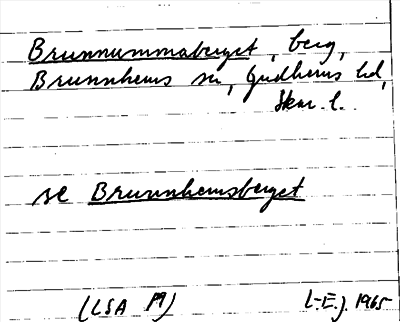 Brunnummaberget, berg,
Brunnhems sn, Gudhems hd,
Skar. l.
se Brunnhemsberget
(LSA P9) L-E.J. 1965